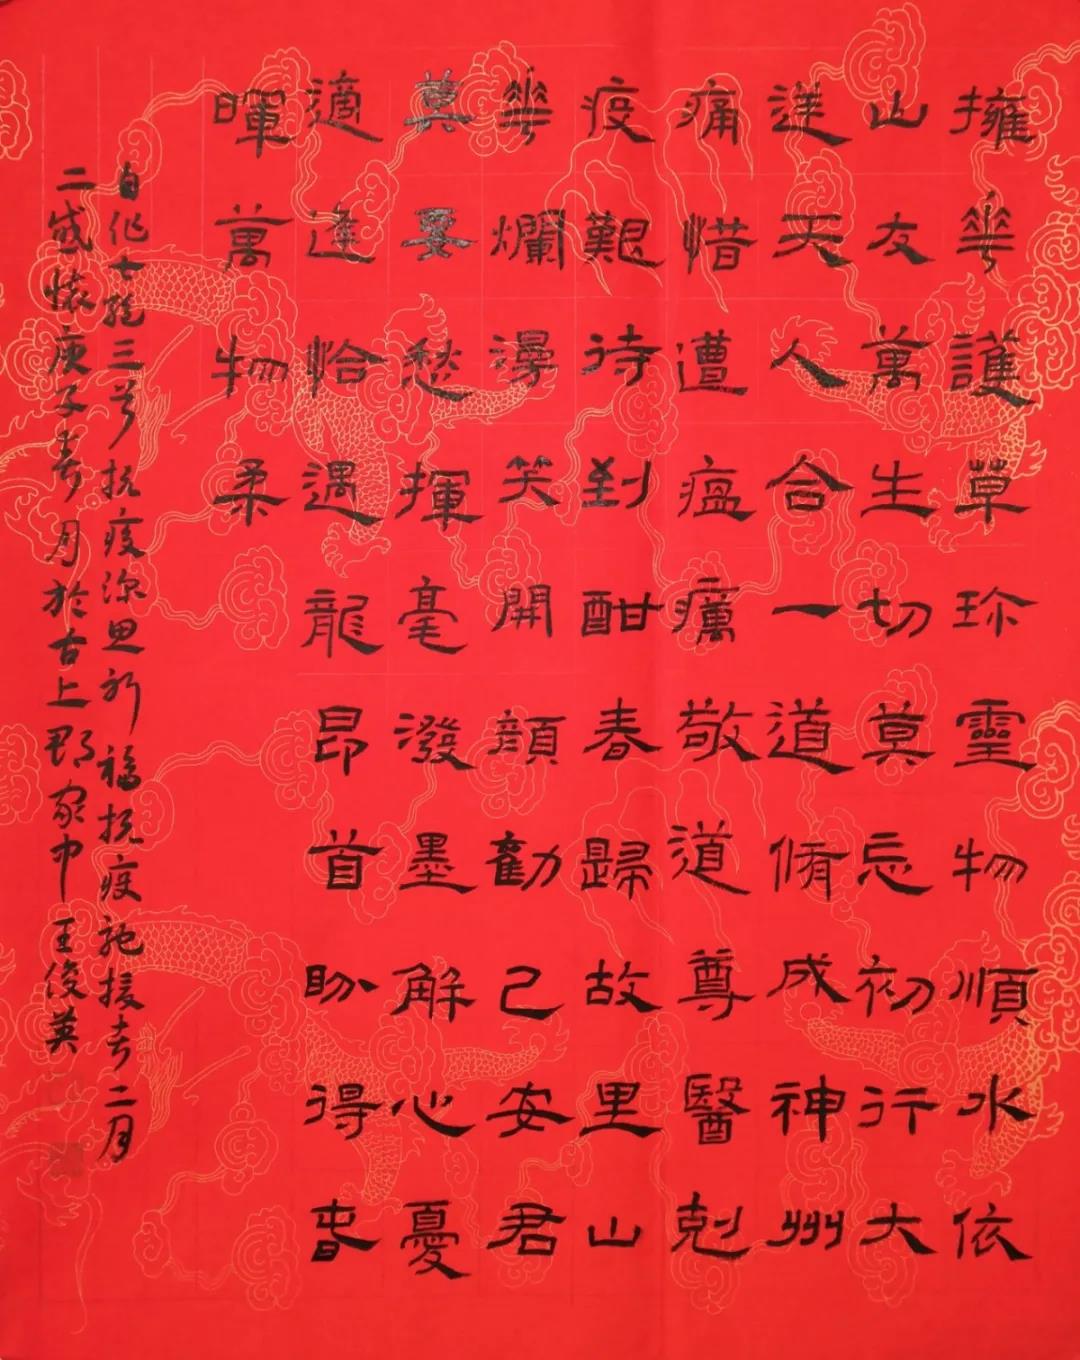 擁華護草珎靈物順水依
山友萬生切莫忘初行大
天人合一道脩成神州
痛惜遭瘟癘敬道尊醫剋
疫艱待到酣春歸故里山
華爛漫笑開顏勸己安君
莫要愁揮毫潑墨解心憂
適逢恰遇龍昂首盼得春
暉萬物柔
自作七絕三首抗疫深思祈福抗疫馳援二月
二感懷庚子春月於古上郡家中王俊英